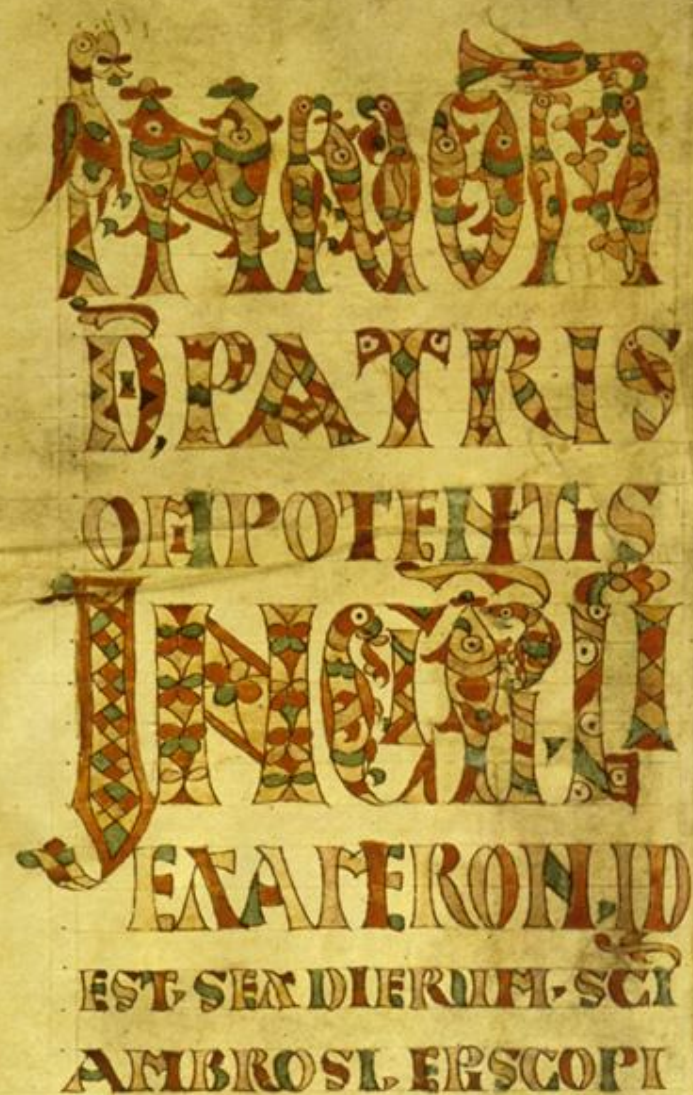 IN NOM̄
D̄I, PATRIS
OMPOTENTIS
IN
EXAMERON, ID
EST, SEX DIERUM, SC̄I
AMBROSI, EPISCOPI